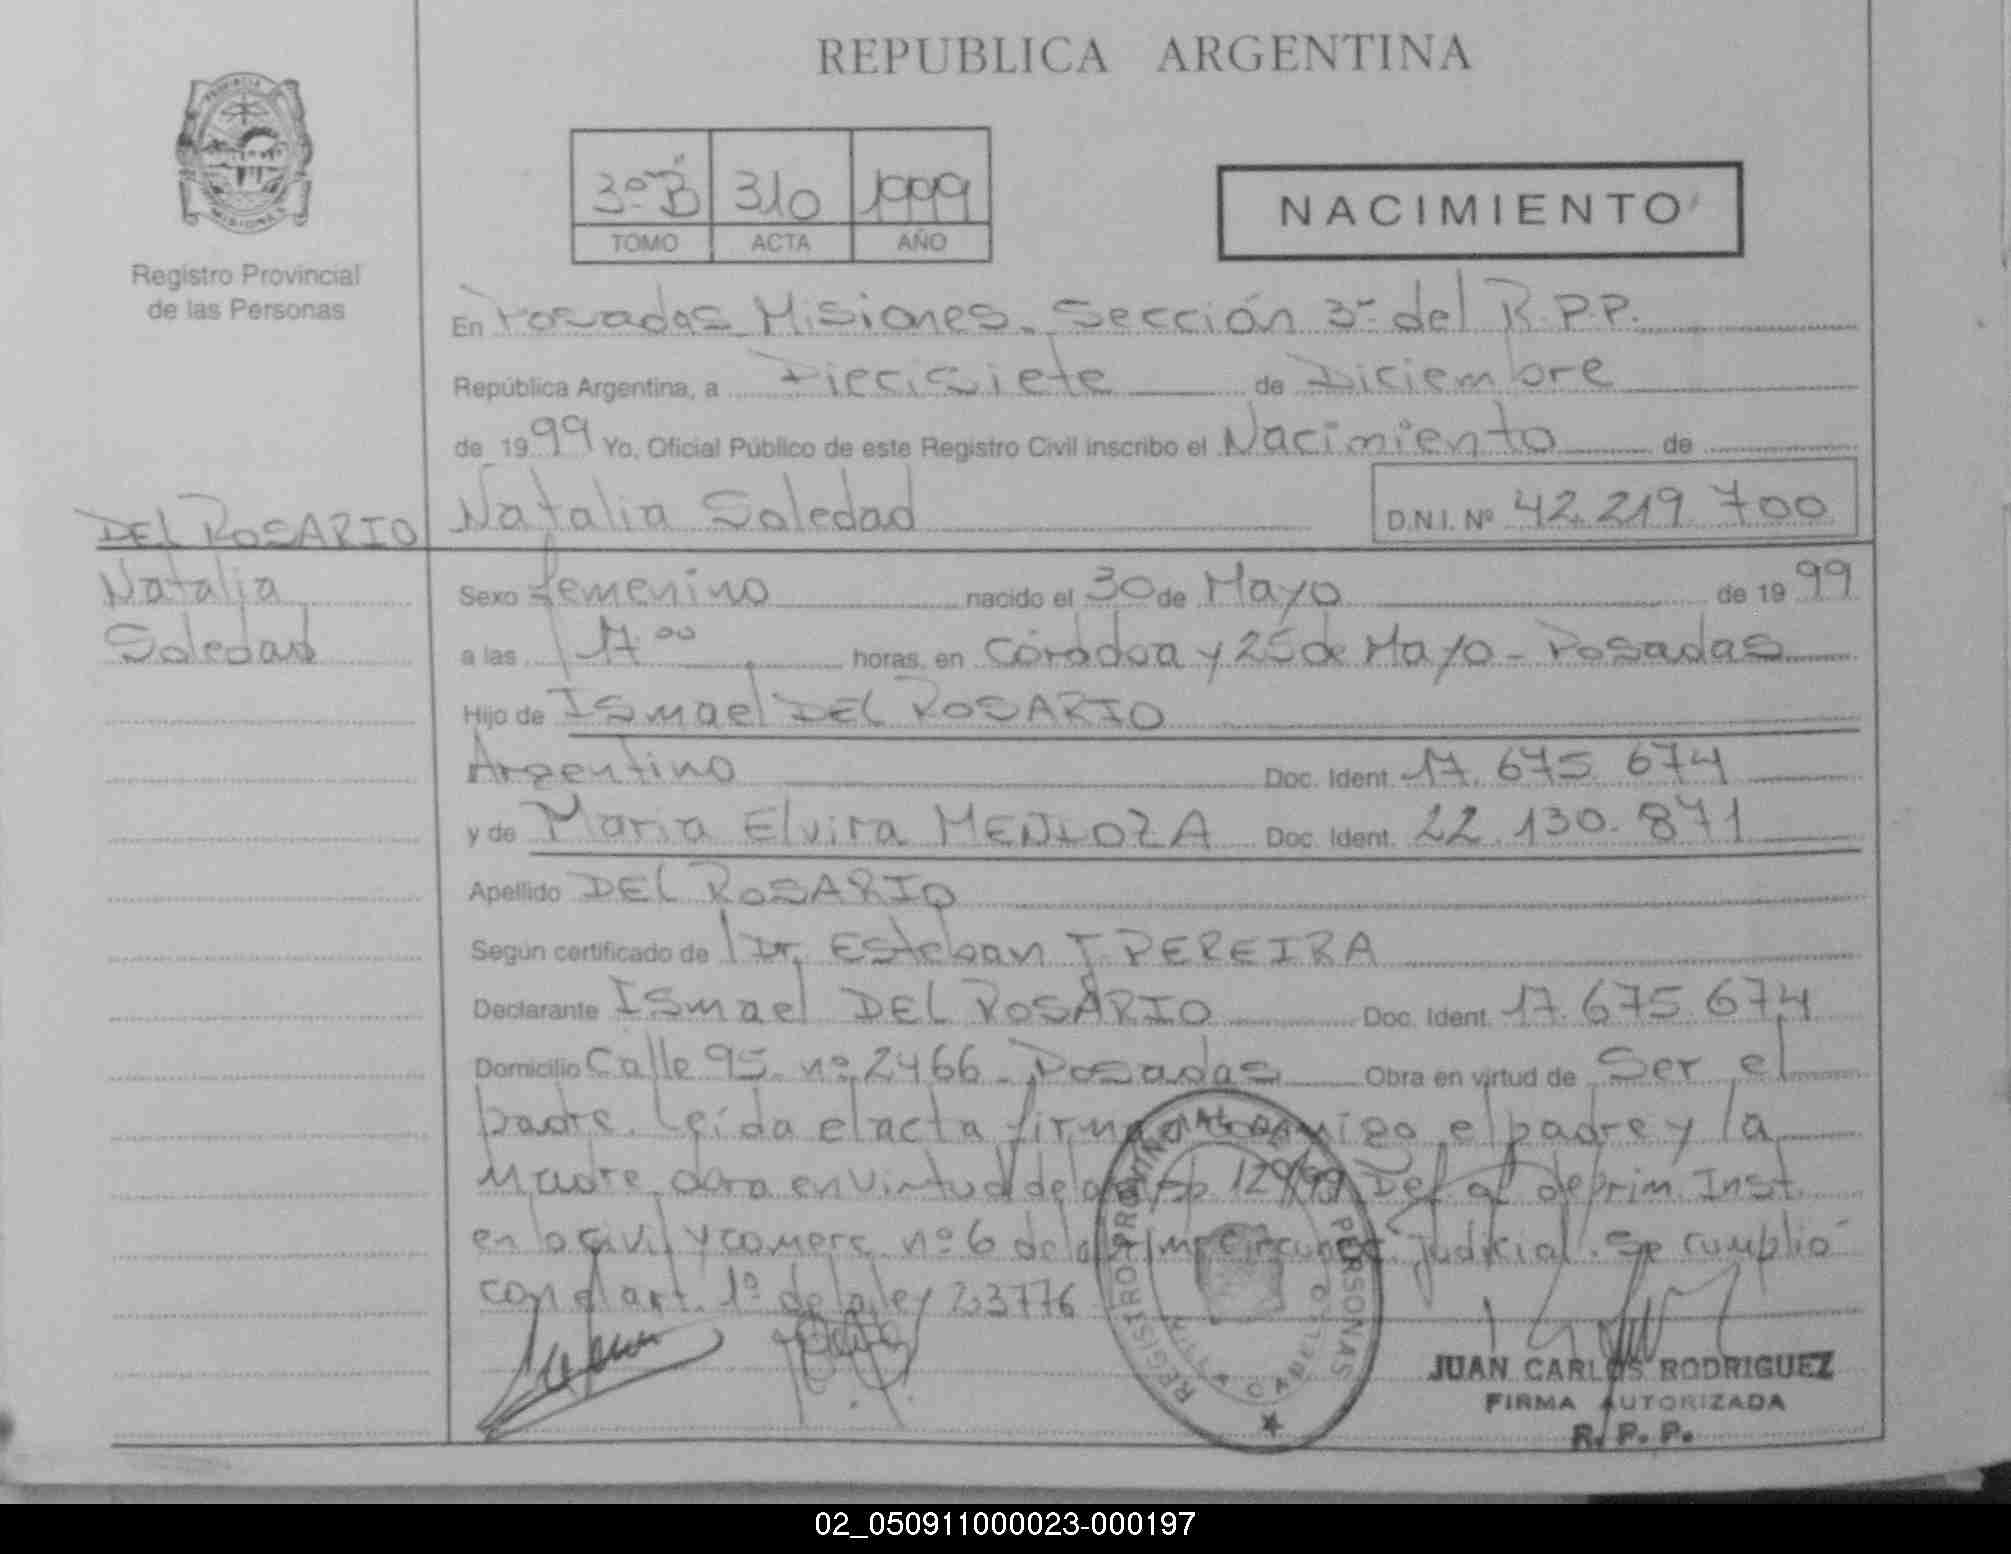 REPUBLICA ARGENTINA
PROVINCIA
MISIONES
Registro Provincial
de las Personas
3º "B" 310 1999
TOMO ACTA AÑO
NACIMIENTO
En Posadas Misiones. Sección 3ª del R.P.P.
República Argentina, a Diecisiete de Diciembre
de 1999 Yo, Oficial Público de este Registro Civil inscribo el Nacimiento de
Natalia Soledad D.N.I. Nº 42.219.700
DEL ROSARIO
Natalia
Soledad
Sexo femenino nacido el 30 de Mayo de 1999
a las 17.00 horas, en Córdoba y 25 de Mayo - Posadas
Hijo de Ismael DEL ROSARIO
Argentino Doc. Ident. 17.675.674
y de Maria Elvira MENDOZA Doc. Ident. 22.130.871
Apellido DEL ROSARIO
Según certificado de Dr. Esteban J. PEREIRA
Declarante Ismael DEL ROSARIO Doc. Ident. 17.675.674
Domicilio Calle 95 nº 2466 - Posadas Obra en virtud de Ser el
padre. Leída el acta firman conmigo el padre y la
Madre, obra en virtud de la 129/99 Def. of. de prim Inst.
en lo civil y comerc. nº 6 de la prim circunsc. judicial. Se cumplió
con el art. 1º de la ley 23776
REGISTRO PROVINCIAL DE LAS PERSONAS
VILLA CABELLO
JUAN CARLOS RODRIGUEZ
FIRMA AUTORIZADA
R. P. P.
02_050911000023-000197